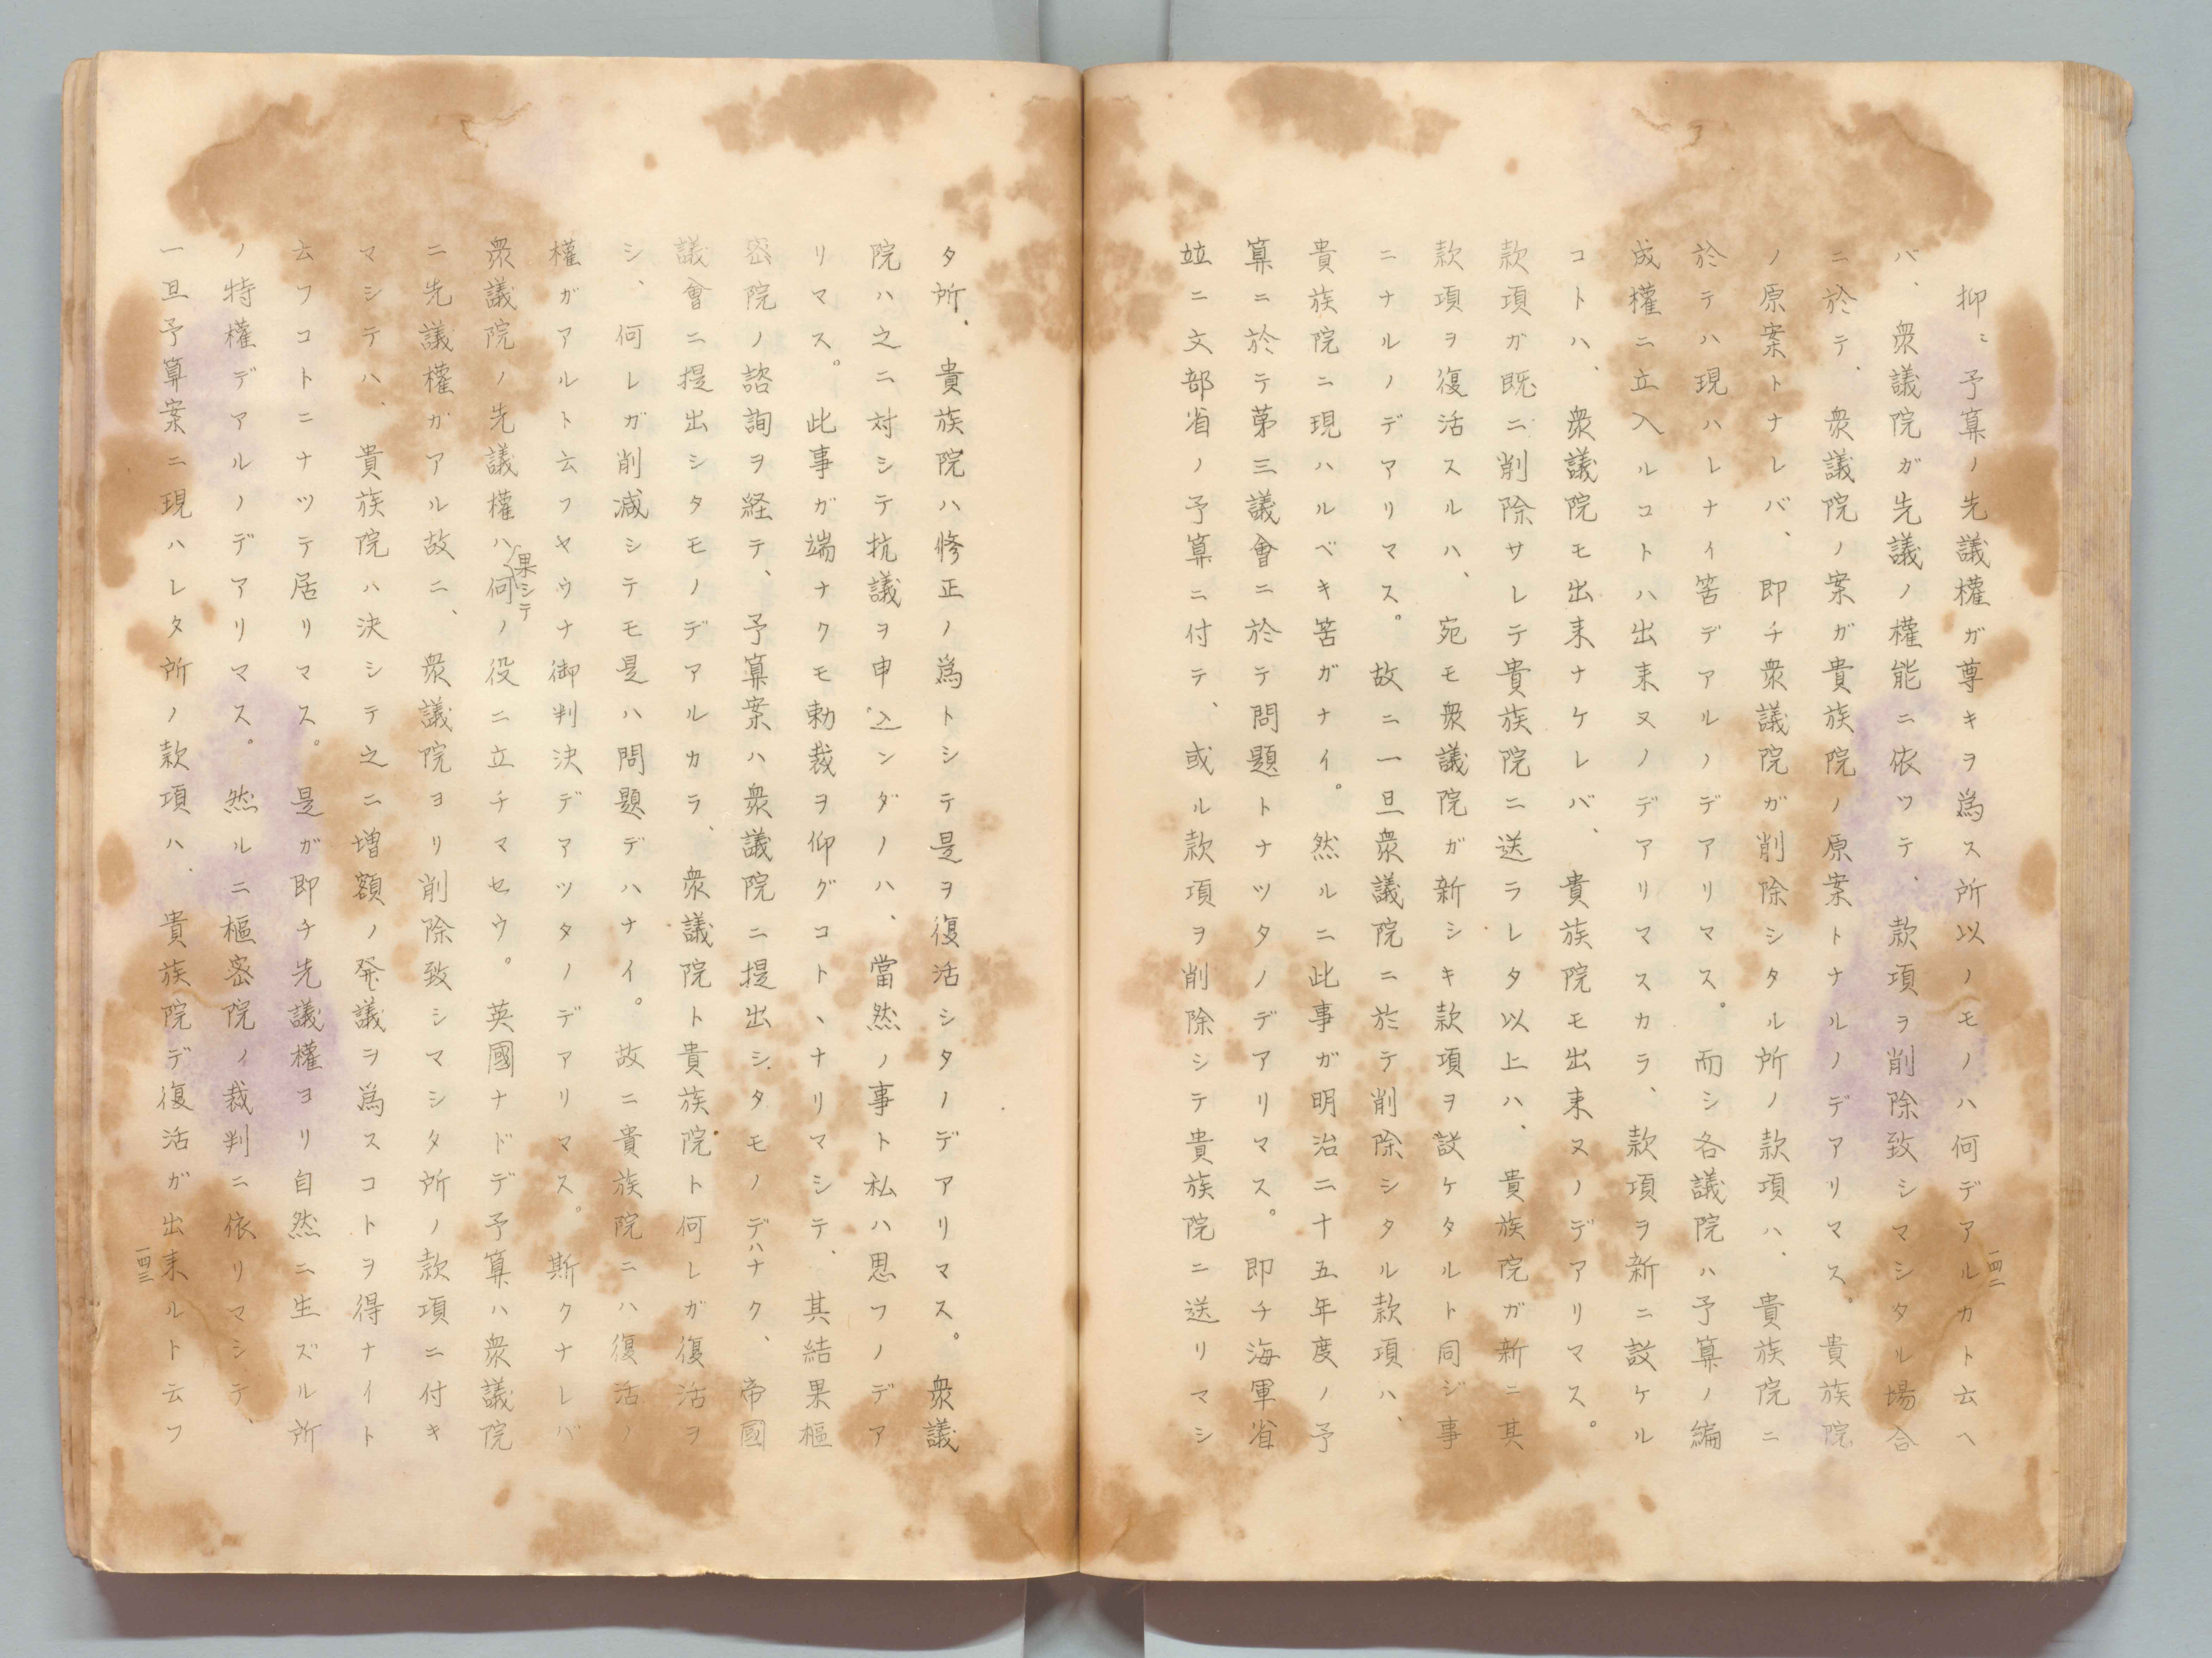 抑ミ予算ノ先議權ガ尊キヲ爲ス所以ノモノハ何デアルカト云ヘ
バ、衆議院ガ先議ノ權能ニ依ツテ、款項ヲ削除致シマシタル場合
ニ於テ、衆議院ノ案ガ貴族院ノ原案トナルノデアリマス。貴族院
ノ原案トナレバ、即チ衆議院ガ削除シタル所ノ款項ハ、貴族院ニ
於テハ現ハレナイ筈デアルノデアリマス。而シ各議院ハ予算ノ編
成權ニ立入ルコトハ出来ヌノデアリマスカラ、款項ヲ新ニ設ケル
コトハ、衆議院モ出来ナケレバ、貴族院モ出来ヌノデアリマス。
款項ガ既ニ削除サレテ貴族院ニ送ラレタ以上ハ、貴族院ガ新ニ其
款項ヲ復活スルハ、宛モ衆議院ガ新シキ款項ヲ設ケタルト同ジ事
ニナルノデアリマス。故ニ一旦衆議院ニ於テ削除シタル款項ハ、
貴族院ニ現ハルベキ筈ガナイ。然ルニ此事ガ明治二十五年度ノ予
算ニ於テ第三議會ニ於テ問題トナツタノデアリマス。即チ海軍省
竝ニ文部省ノ予算ニ付テ、或ル款項ヲ削除シテ貴族院ニ送リマシ
一四二
タ所、貴族院ハ修正ノ爲トシテ是ヲ復活シタノデアリマス。衆議
院ハ之ニ対シテ抗議ヲ申込ンダノハ、當然ノ事ト私ハ思フノデア
リマス。此事ガ端ナクモ勅裁ヲ仰グコトヽナリマシテ、其結果樞
密院ノ諮詢ヲ経テ、予算案ハ衆議院ニ提出シタモノデハナク、帝國
議會ニ提出シタモノデアルカラ、衆議院ト貴族院ト何レガ復活ヲ
シ、何レガ削減シテモ是ハ問題デハナイ。故ニ貴族院ニハ復活ノ
權ガアルト云フヤウナ御判決デアツタノデアリマス。斯クナレバ
衆議院ノ先議權ハ果シテ何ノ役ニ立チマセウ。英國ナドデ予算ハ衆議院
ニ先議權ガアル故ニ、衆議院ヨリ削除致シマシタ所ノ款項ニ付キ
マシテハ、貴族院ハ決シテ之ニ増額ノ発議ヲ爲スコトヲ得ナイト
云フコトニナツテ居リマス。是ガ即チ先議權ヨリ自然ニ生ズル所
ノ特權デアルノデアリマス。然ルニ樞密院ノ裁判ニ依リマシテ、
一旦予算案ニ現ハレタ所ノ款項ハ、貴族院デ復活ガ出来ルト云フ
一四三